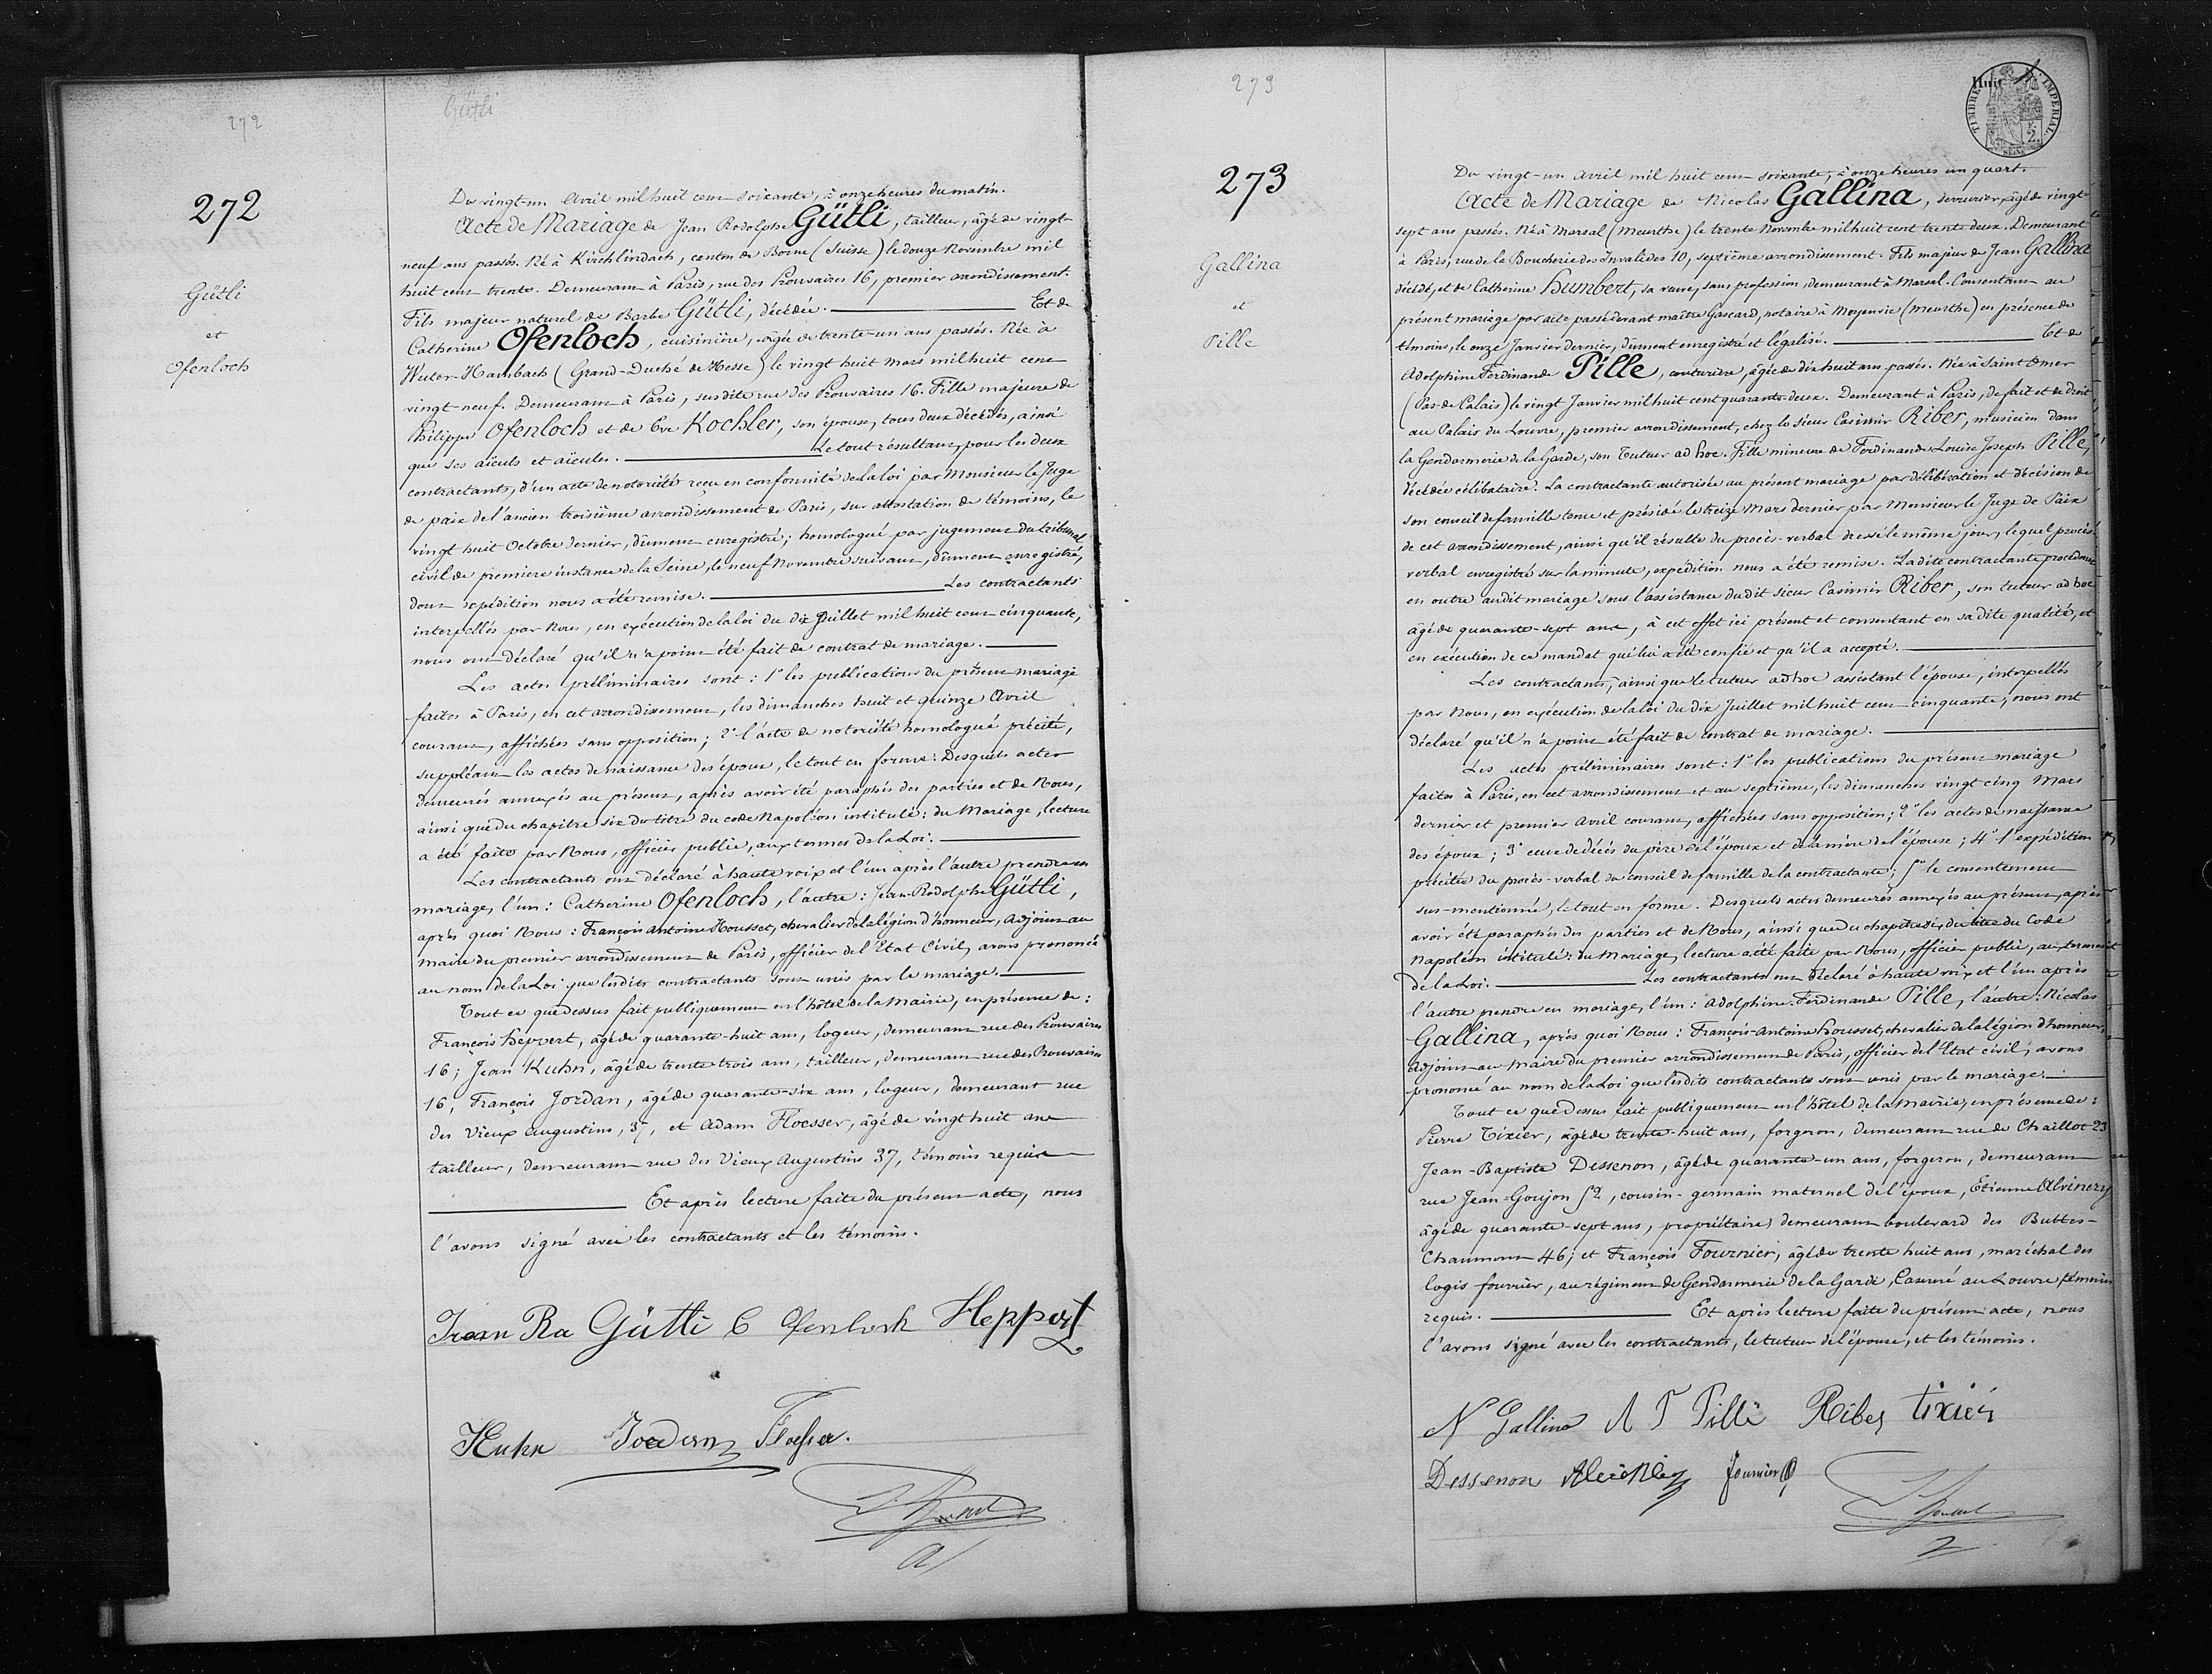 272
Gütli
272
Gütli
et
Ofenloch
Du vingt-un Avril mil huit cent soixante, à onze heures du matin.
Acte de Mariage de Jean Rodolphe Gütli, tailleur, âgé de vingt-
neuf ans passés. Né à Kirchlindach, canton de Berne (Suisse) le douze Novembre mil
huit cent trente. Demeurant à Paris, rue des Prouvaires 16, premier arrondissement.
Fils majeur naturel de Barbe Gütli, décédée. Et de
Catherine Ofenloch, cuisinière, âgée de trente-un ans passés. Née à
Hambach (Grand-Duché de Hesse) le vingt huit Mars mil huit cent
vingt-neuf. Demeurant à Paris, susdite rue des Prouvaires 16. Fille majeure de
Philippe Ofenloch et de Eve Kochler, son épouse, tous deux décédés, ainsi
que ses aïeuls et aïeules. Le tout résultant, pour les deux
contractants, d'un acte de notoriété reçu en conformité de la loi par Monsieur le Juge
de paix de l'ancien troisième arrondissement de Paris, sur attestation de témoins, le
vingt huit Octobre dernier, dûment enregistré; homologué par jugement du tribunal
civil de premiere instance de la Seine, le neuf Novembre suivant, dûment enregistré,
dont expédition nous a été remise. Les contractants
interpellés par Nous, en exécution de la loi du dix Juillet mil huit cent cinquante,
nous ont déclaré qu'il n'a point été fait de contrat de mariage.
Les actes préliminaires sont: 1° les publications du présent mariage
faites à Paris, en cet arrondissement, les dimanches huit et quinze Avril
courant, affichées sans opposition; 2° l'acte de notoriété homologué précité,
suppléant les actes de naissance des époux, le tout en forme: Desquels actes
demeurés annexés au présent, après avoir été paraphés des parties et de Nous,
ainsi que du chapitre six du titre du code Napoléon intitulé: du Mariage, lecture
a été faite par Nous, officier public, aux termes de la Loi.
Les contractants ont déclaré à haute voix et l'un après l'autre prendre en
mariage, l'un: Catherine Ofenloch, l'autre: Jean Rodolphe Gütli,
après quoi Nous: François Antoine Housset, chevalier de la légion d'honneur, Adjoint au
maire du premier arrondissement de Paris, officier de l'Etat Civil, avons prononcé
au nom de la Loi que lesdits contractants sont unis par le mariage.
Tout ce que dessus fait publiquement en l'hôtel de la Mairie, en présence de:
François Heppert, âgé de quarante-huit ans, logeur, demeurant rue des Prouvaires
16; Jean Kuhn, âgé de trente trois ans, tailleur, demeurant rue des Prouvaires
16, François Jordan, âgé de quarante-six ans, logeur, demeurant rue
des Vieux Augustins, 37, et Adam Floesser, âgé de vingt huit ans
tailleur, demeurant rue des Vieux Augustins 37, témoins requis
Et après lecture faite du présent acte, nous
l'avons signé avec les contractants et les témoins.
Jean Ro Gütli C Ofenloch Heppert
Kuhn Jordan Floesser.
273
273
Gallina
et
Pille
Huit
TIMBRE IMPERIAL
2
SEINE
Du vingt-un Avril mil huit cent soixante, à onze heures un quart.
Acte de Mariage de Nicolas Gallina, serrurier, âgé de vingt-
sept ans passés. Né à Marsal (Meurthe) le trente Novembre mil huit cent trente deux. Demeurant
à Paris, rue de la Boucherie des Invalides 10, septième arrondissement. Fils majeur de Jean Gallina
décédé, et de Catherine Humbert, sa veuve, sans profession, demeurant à Marsal. Consentant au
présent mariage par acte passé devant maître Gascard, notaire à Moyenvic (Meurthe) en présence de
témoins, le onze Janvier dernier, dûment enregistré et légalisé. Et de
Adolphine Ferdinande Pille, couturière, âgée de dix huit ans passés. Née à Saint Omer
(Pas-de-Calais) le vingt Janvier mil huit cent quarante-deux. Demeurant à Paris, de fait et de droit
au Palais du Louvre, premier arrondissement, chez le sieur Casimir Riber, musicien dans
la Gendarmerie de la Garde, son Tuteur ad hoc. Fille mineure de Ferdinande Louise Joseph Pille,
décédée célibataire. La contractante autorisée au présent mariage par délibération et décision de
son conseil de famille tenu et présidé le treize Mars dernier par Monsieur le Juge de Paix
de cet arrondissement, ainsi qu'il résulte du procès-verbal dressé le même jour, lequel procès-
verbal enregistré sur la minute, expédition nous a été remise. Ladite contractante procédant
en outre audit mariage sous l'assistance dudit sieur Casimir Riber, son tuteur ad hoc
âgé de quarante-sept ans, à cet effet ici présent et consentant en sa dite qualité, et
en exécution de ce mandat qui lui a été confié et qu'il a accepté.
Les contractants, ainsi que le tuteur ad hoc assistant l'épouse, interpellés
par Nous, en exécution de la loi du dix Juillet mil huit cent cinquante, nous ont
déclaré qu'il n'a point été fait de contrat de mariage.
Les actes préliminaires sont: 1° les publications du présent mariage
faites à Paris, en cet arrondissement et au septième, les dimanches vingt cinq Mars
dernier et premier Avril courant, affichées sans opposition; 2° les actes de naissance
des époux; 3° ceux de décès du père de l'époux et de la mère de l'épouse; 4° l'expédition
précitée du procès-verbal du conseil de famille de la contractante; 5° le consentement
sus-mentionné, le tout en forme. Desquels actes demeurés annexés au présent, après
avoir été paraphés des parties et de Nous, ainsi que du chapitre six, du titre du Code
Napoléon intitulé: du Mariage, lecture a été faite par Nous, officier public, aux termes
de la Loi. Les contractants ont déclaré à haute voix et l'un après
l'autre prendre en mariage, l'un: Adolphine Ferdinande Pille, l'autre: Nicolas
Gallina, après quoi Nous: François-Antoine Housset, chevalier de la légion d'honneur,
Adjoint au Maire du premier arrondissement de Paris, officier de l'Etat civil, avons
prononcé au nom de la Loi que lesdits contractants sont unis par le mariage.
Tout ce que dessus fait publiquement en l'hôtel de la Mairie, en présence de:
Pierre Tixier, âgé de trente-huit ans, forgeron, demeurant rue de Chaillot 23
Jean-Baptiste Dessenon, âgé de quarante-un ans, forgeron, demeurant
rue Jean-Goujon 52, cousin-germain maternel de l'époux, Etienne
âgé de quarante-sept ans, propriétaire, demeurant boulevard des Buttes-
Chaumont 46; et François Fournier, âgé de trente huit ans, maréchal des
logis fourrier, au régiment de Gendarmerie de la Garde, Caserné au Louvre témoins
requis. Et après lecture faite du présent acte, nous
l'avons signé avec les contractants, le tuteur de l'épouse, et les témoins.
N Gallina A F Pille Riber tixier
Dessenon fournier